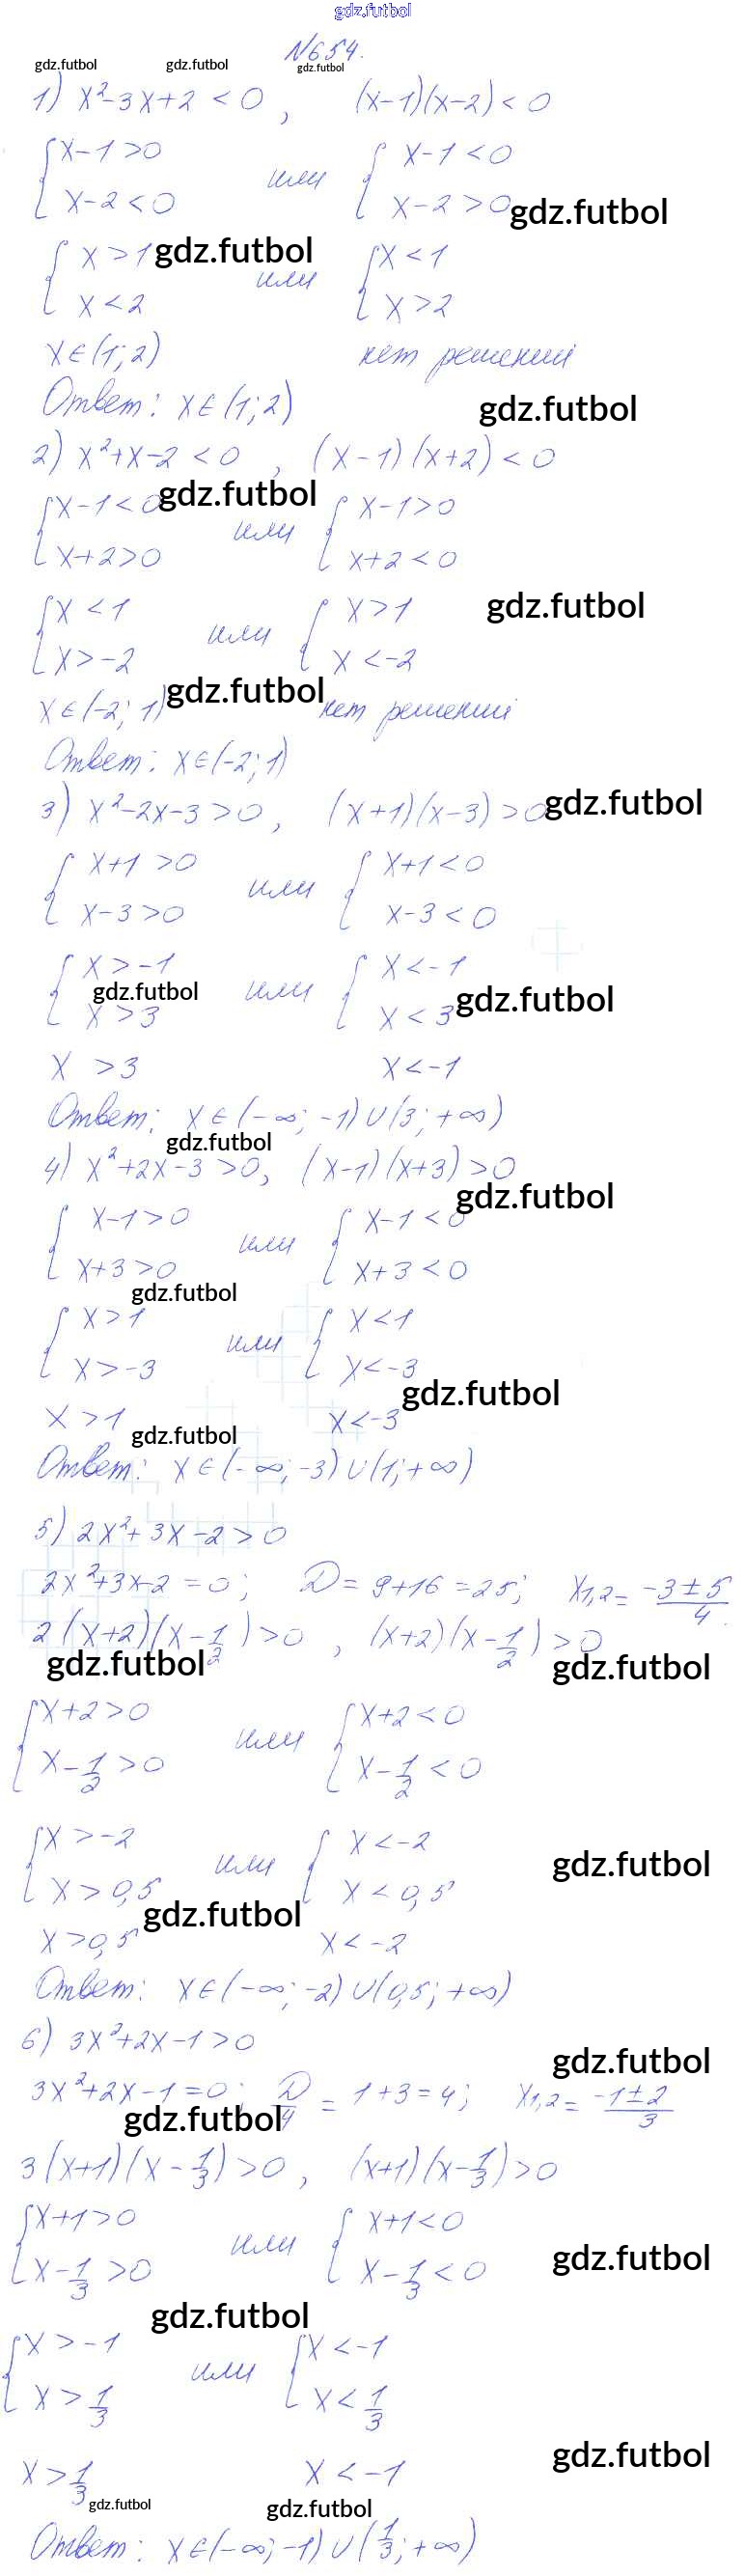 gdz.futbol
№654.
gdz.futbol gdz.futbol gdz.futbol
1) x²-3x+2 < 0, (x-1)(x-2) < 0
{ x-1 > 0 или { x-1 < 0
x-2 < 0 x-2 > 0 gdz.futbol
{ x > 1 gdz.futbol или { x < 1
x < 2 x > 2
x∈(1; 2) нет решений
Ответ: x∈(1; 2) gdz.futbol
2) x²+x-2 < 0, (x-1)(x+2) < 0
{ x-1 < 0 gdz.futbol или { x-1 > 0
x+2 > 0 x+2 < 0
{ x < 1 или { x > 1 gdz.futbol
x > -2 x < -2
x∈(-2; 1) gdz.futbol нет решений
Ответ: x∈(-2; 1)
3) x²-2x-3 > 0, (x+1)(x-3) > 0 gdz.futbol
{ x+1 > 0 или { x+1 < 0
x-3 > 0 x-3 < 0
{ x > -1 или { x < -1
gdz.futbol gdz.futbol
x > 3 x < 3
x > 3 x < -1
Ответ: x∈(-∞; -1)∪(3; +∞)
gdz.futbol
4) x²+2x-3 > 0, (x-1)(x+3) > 0
gdz.futbol
{ x-1 > 0 или { x-1 < 0
x+3 > 0 x+3 < 0
gdz.futbol
{ x > 1 или { x < 1
x > -3 x < -3
gdz.futbol
x > 1 x < -3
gdz.futbol
Ответ: x∈(-∞; -3)∪(1; +∞)
5) 2x²+3x-2 > 0
2x²+3x-2 = 0; D = 9+16 = 25; x₁,₂ = (-3±5)/4.
2(x+2)(x-1/2) > 0, (x+2)(x-1/2) > 0
gdz.futbol gdz.futbol
{ x+2 > 0 или { x+2 < 0
x-1/2 > 0 x-1/2 < 0
{ x > -2 или { x < -2
gdz.futbol
x > 0,5 x < 0,5
gdz.futbol
x > 0,5 x < -2
Ответ: x∈(-∞; -2)∪(0,5; +∞)
6) 3x²+2x-1 > 0
gdz.futbol
3x²+2x-1 = 0; D/4 = 1+3 = 4; x₁,₂ = (-1±2)/3
gdz.futbol
3(x+1)(x-1/3) > 0, (x+1)(x-1/3) > 0
{ x+1 > 0 или { x+1 < 0
x-1/3 > 0 x-1/3 < 0 gdz.futbol
gdz.futbol
{ x > -1 или { x < -1
x > 1/3 x < 1/3
gdz.futbol
x > 1/3 x < -1
gdz.futbol gdz.futbol
Ответ: x∈(-∞; -1)∪(1/3; +∞)